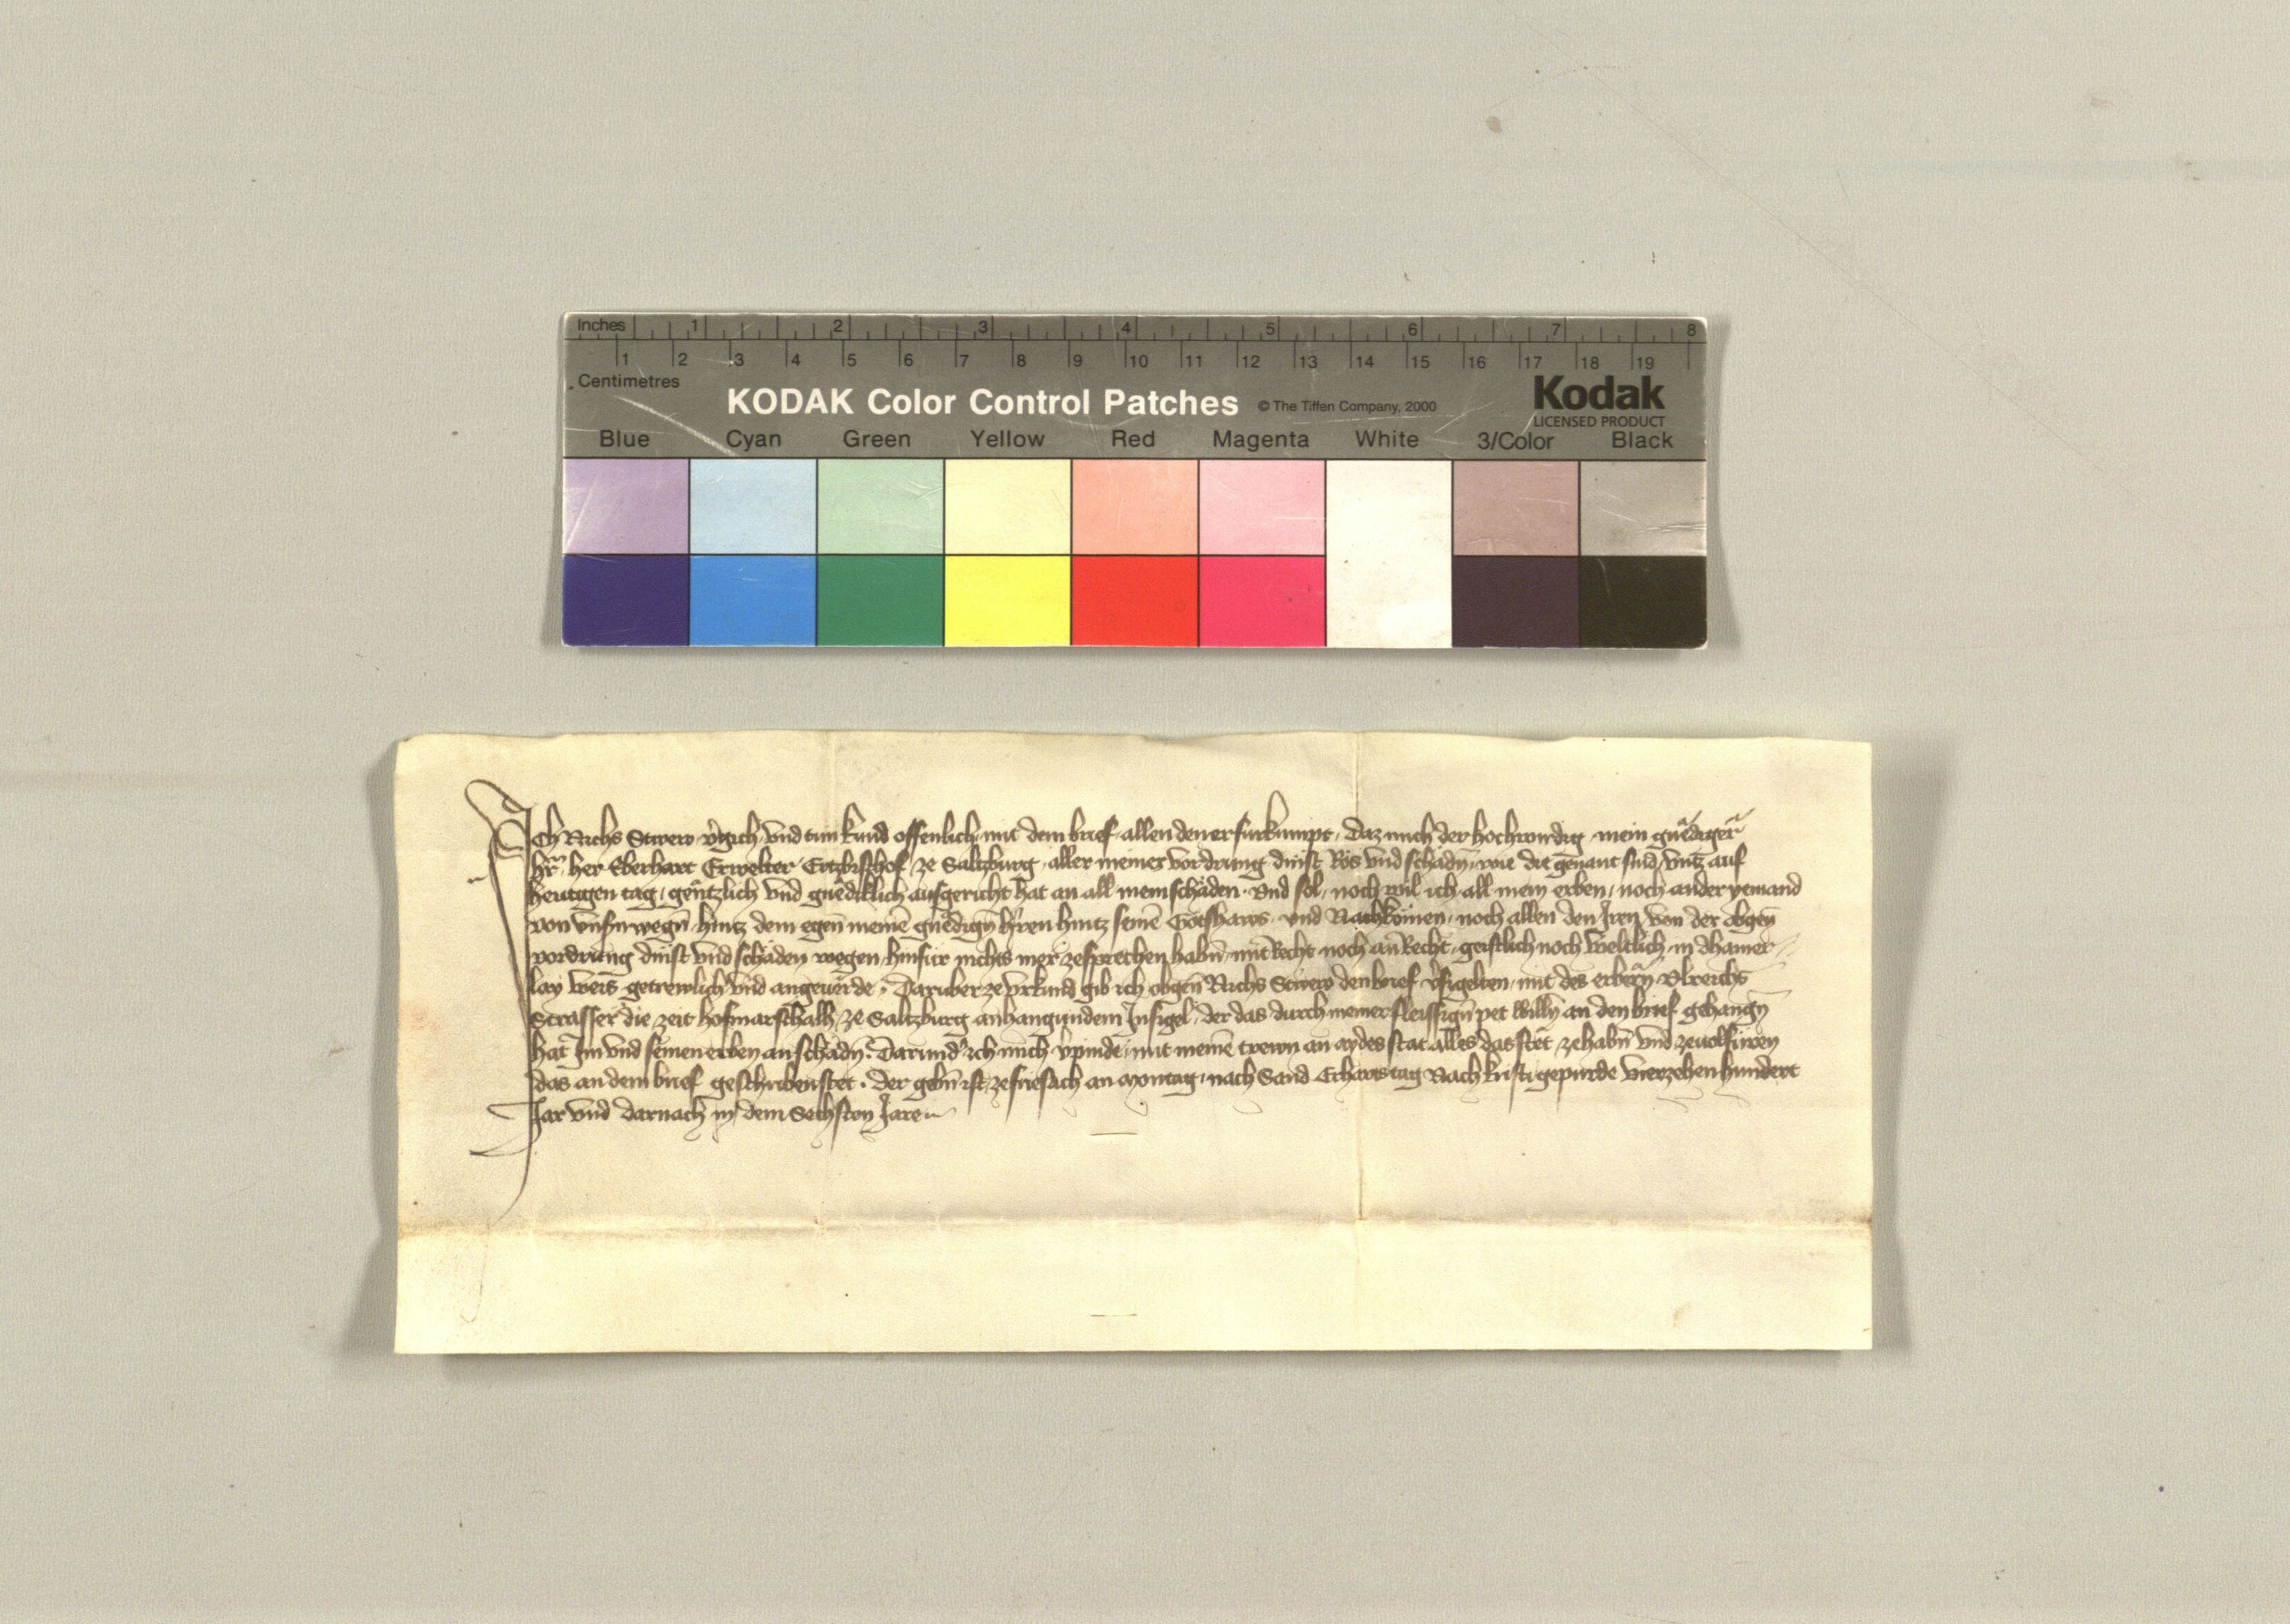 Inches 1 2 3 4 5 6 7 8
1 2 3 4 5 6 7 8 9 10 11 12 13 14 15 16 17 18 19
Centimetres
KODAK Color Control Patches © The Tiffen Company, 2000 Kodak
LICENSED PRODUCT
Blue Cyan Green Yellow Red Magenta White 3/Color Black
Ich vgich vnd tun kund offenlich mit dem brief allen den er furkumpt, daz mich der hochwirdig mein gnëdiger
hr̄ her Eberhart Erwelter Ertzbischof ze Saltzburg aller meiner vordrung dinst Ros vnd schëdn̄ wie die genant sind vntz auf
heutigen tag gëntzlich vnd gnëdiklich ausgericht hat an all mein schäden vnd sol noch wil ich all mein erben noch ander yemand
von vnsn̄ wegn̄ hintz dem egen̄ meinē gnëdign̄ hr̄ren hintz seinē Gotshaws vnd Nachkömen noch allen den Iren von der obgen̄
vordrung dinst vnd schäden wegen hinfür nichts mer zesprechen habn̄ mit Recht noch an Recht geistlich noch weltlich in dhainer
lay weis getrewlich vnd angeuërde. Daruber ze vrkund gib ich obgen̄ den brief vsigelten mit des erbern̄ Vlreichs
Strasser die zeit hofmarschalh ze Saltzburg anhangundem Insigel der das durch meiner fleissign̄ pet willn̄ an den brief gehangn̄
hat Im vnd seinen erben an schadn̄. Darund' ich mich vpinde mit meinē trewn an aydes stat alles das stet ze habn̄ vnd zeuolfüren
das an dem brief geschriben stet. der gebn̄ ist ze friesach an Montag nach Sand Erharts tag Nach kristi gepurde vierzehenhundert
Jar vnd darnach in dem Sechsten Jare